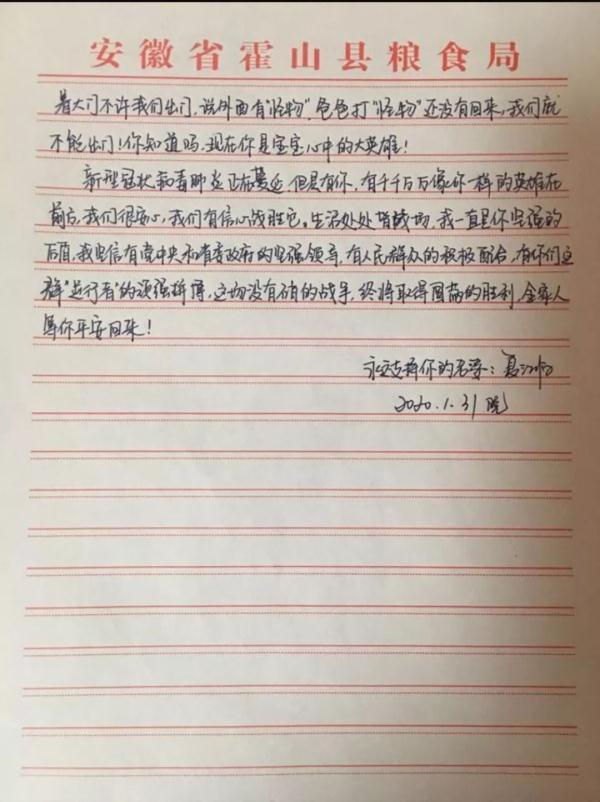 安徽省霍山县粮食局
着大门不许我们出门,说外面有“怪物”,爸爸打“怪物”还没有回来,我们就
不能出门!你知道吗,现在你是宝宝心中的大英雄!
新型冠状病毒肺炎正在蔓延,但是有你,有千千万万像你一样的英雄在
前方,我们很安心,我们有信心战胜它。生活处处皆战场,我一直是你坚强的
后盾,我坚信有党中央和省委政府的坚强领导,有人民群众的积极配合,有你们这
群“逆行者”的顽强拼搏,这场没有硝的战争,终将取得圆满的胜利,全家人
等你平安归来!
永远支持你的老婆:夏
2020.1.31晚